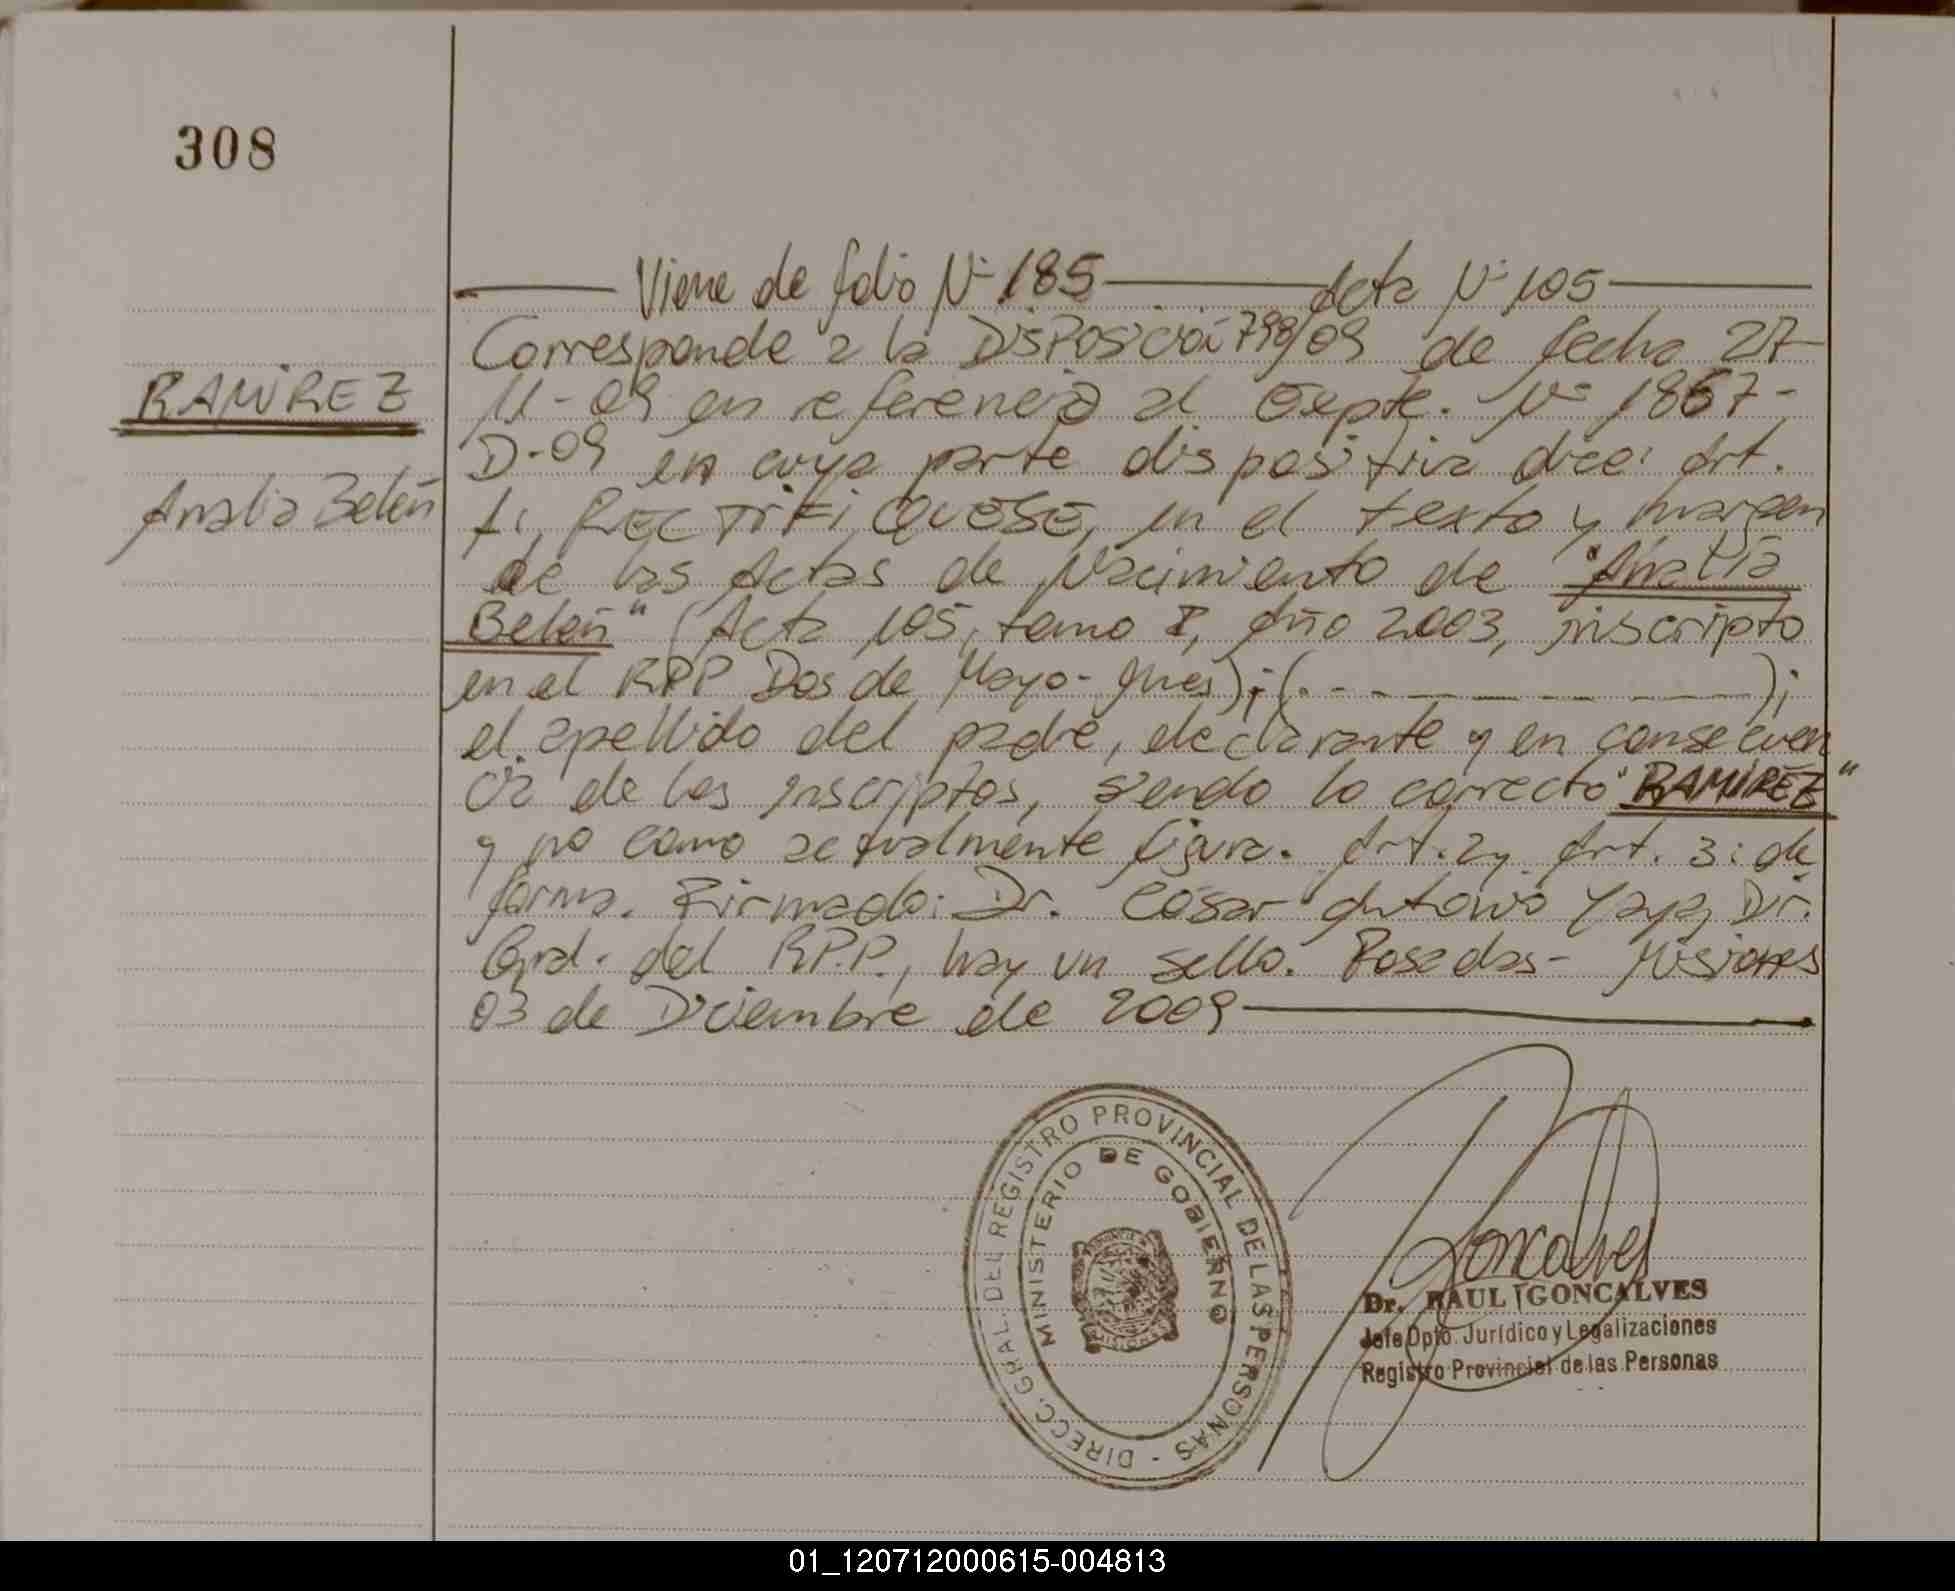 308
Viene de folio Nº 185 Acta Nº 105
Corresponde a la Disposición 799/09 de fecha 27-
RAMIREZ
11-09 en referencia al Expte. Nº 1867-
D-09 en cuya parte dispositiva dice: Art.
Analia Belén
1: RECTIFIQUESE, en el texto y margen
de las Actas de Nacimiento de "Analia
Belén" (Acta 105, tomo I, Año 2003, inscripto
en el RPP Dos de Mayo-Mnes); (. - - - - - - -);
el apellido del padre, declarante y en consecuen
cia de los inscriptos, siendo lo correcto "RAMIREZ"
y no como actualmente figura. Art. 2 y Art. 3: de
forma. Firmado: Dr. César Antonio Yaya, Dir.
Gral. del RP.P., hay un sello. Posadas- Misiones
03 de Diciembre de 2009
DIRECC. GRAL. DEL REGISTRO PROVINCIAL DE LAS PERSONAS -
MINISTERIO DE GOBIERNO
Goncalves
Dr. RAUL GONCALVES
Jefe Dpto. Jurídico y Legalizaciones
Registro Provincial de las Personas
01_120712000615-004813